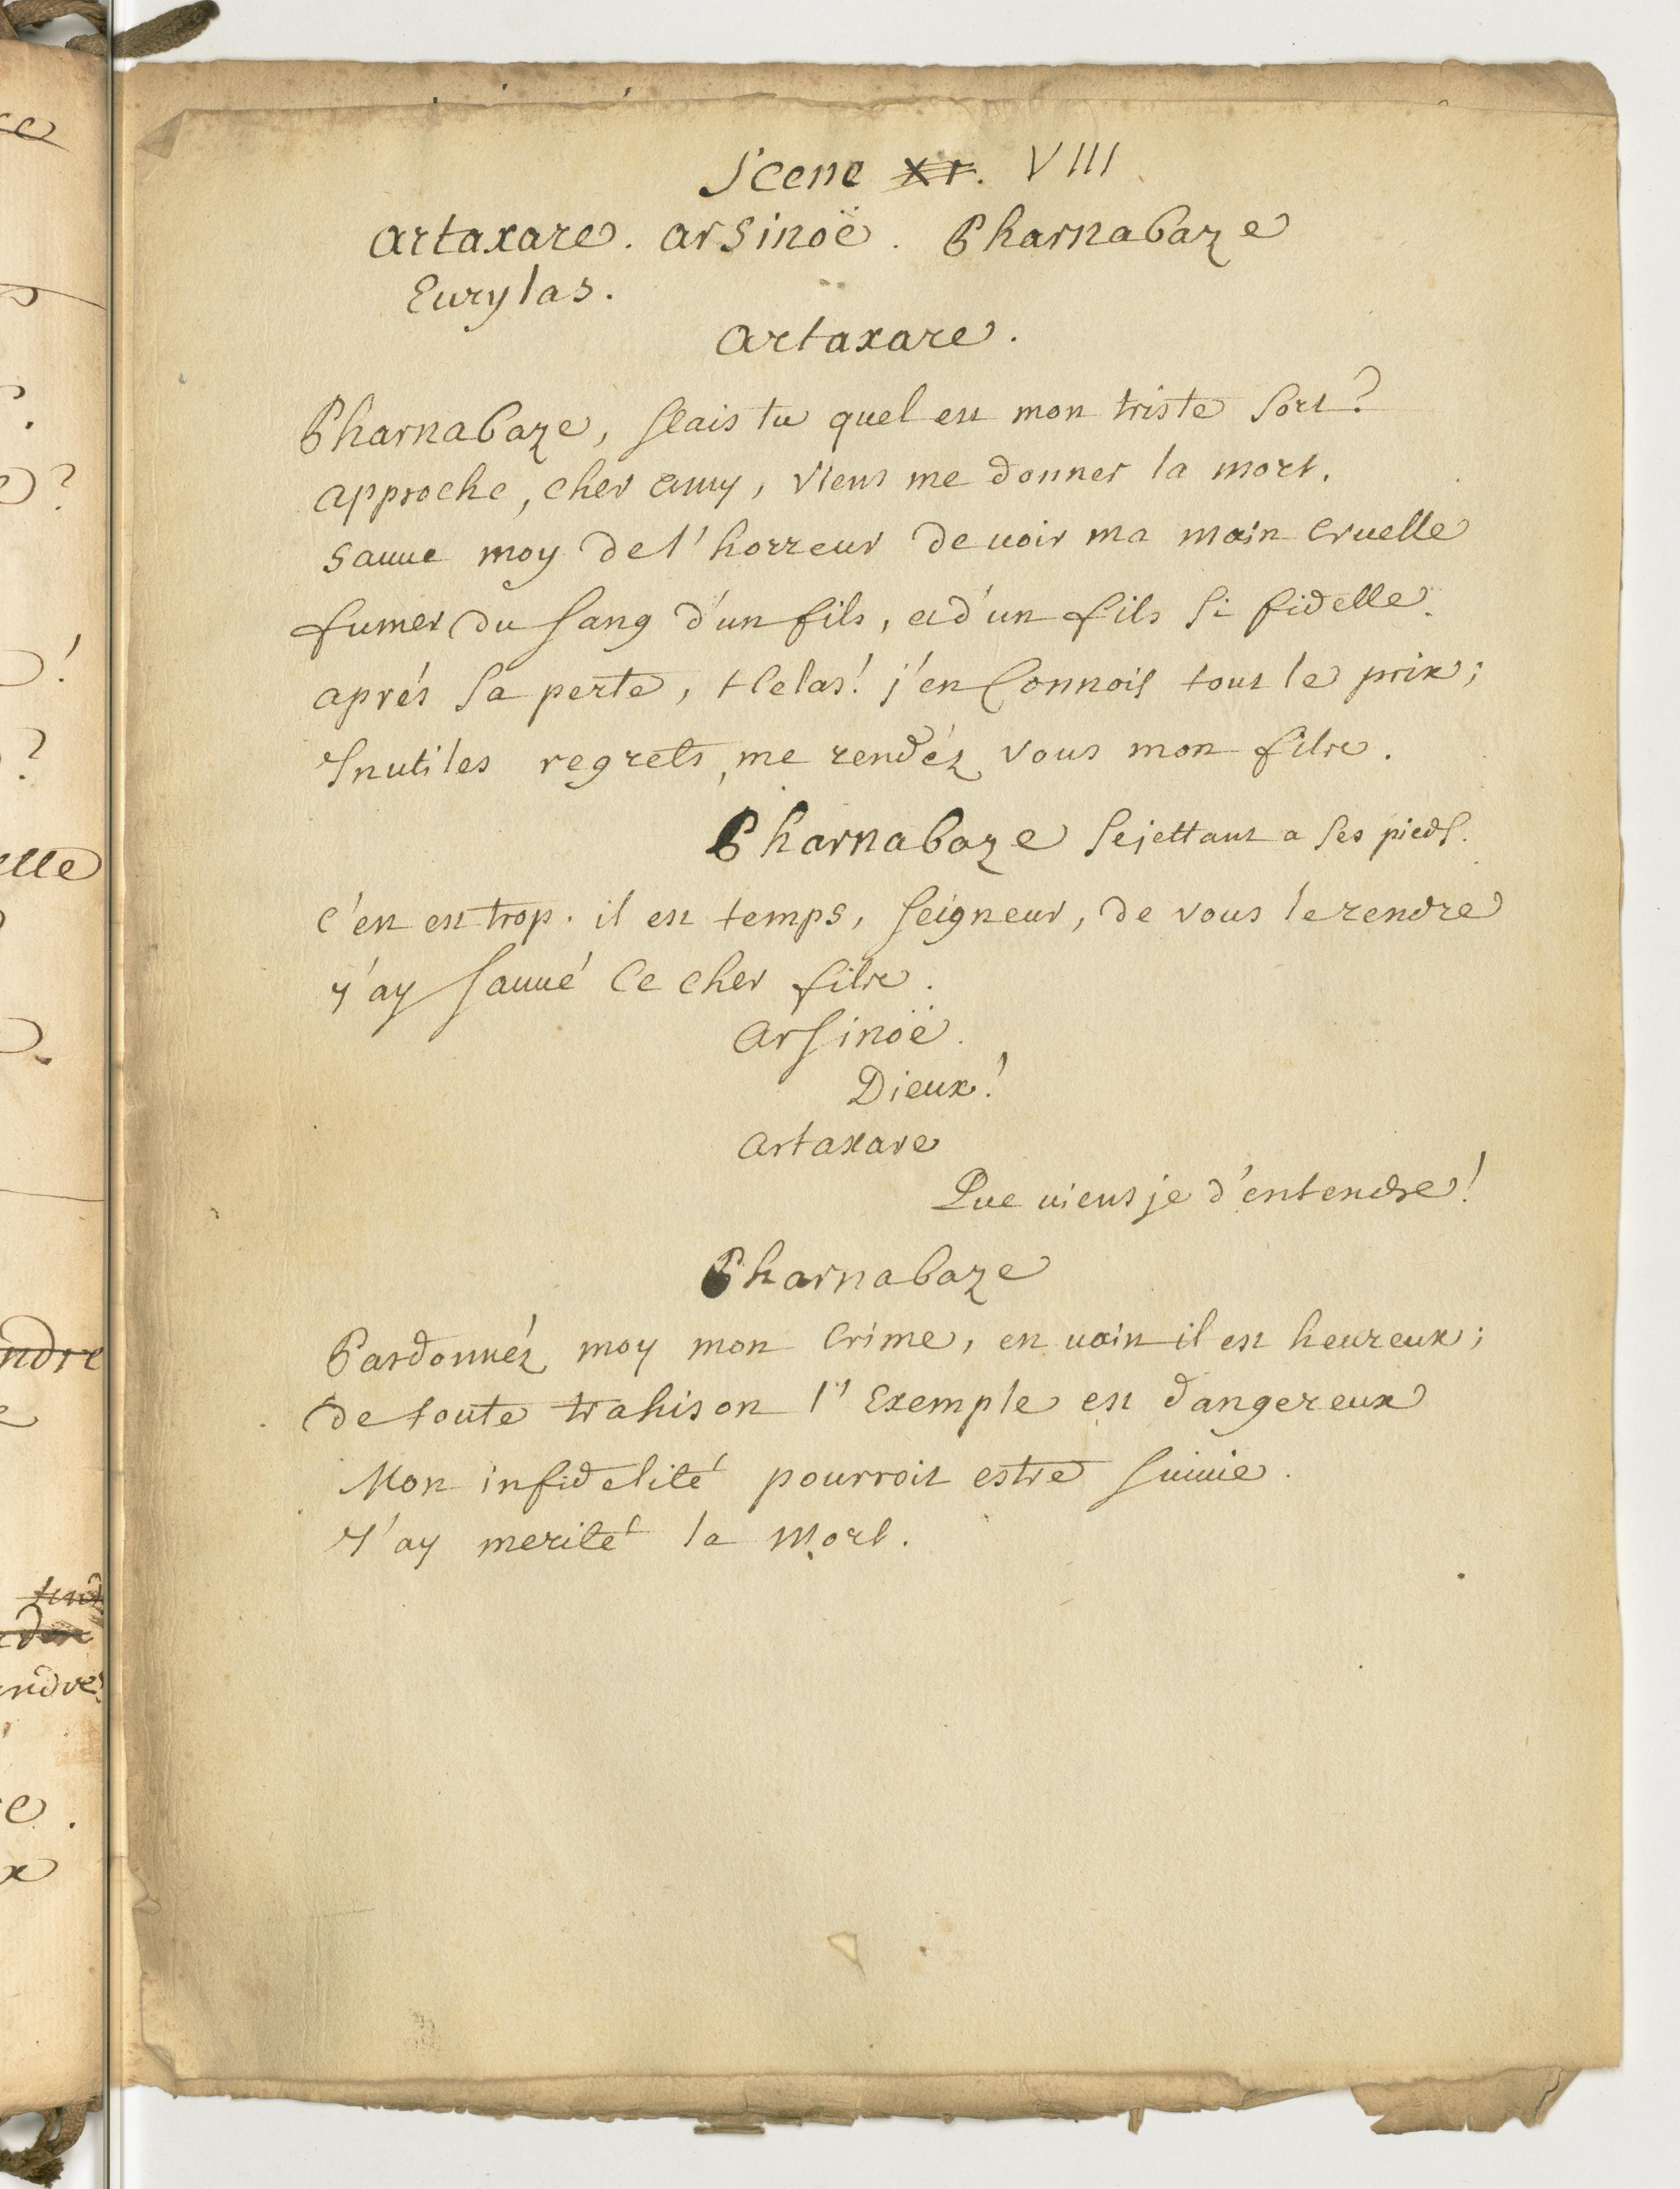 Scene XI. VIII
Artaxare. Arsinoë. Pharnabaze
Eurylas.
Artaxare.
Pharnabaze, sçais tu quel est mon triste sort?
approche, cher amy, viens me donner la mort.
sauue moy de l'horreur de uoir ma main cruelle
fumer du sang d'un fils, et d'un fils si fidelle.
aprés sa perte, Helas! j'en connois tout le prix;
Inutiles regrets, me rendéz vous mon fils.
Pharnabaze se jettant a ses pieds.
c'en est trop. il est temps, seigneur, de vous le rendre
j'ay sauué ce cher fils.
Arsinoë.
Dieux!
Artaxare
Que uiens je d'entendre!
Pharnabaze
Pardonnéz moy mon crime, en uain il est heureux;
de toute trahison l'Exemple est dangereux
Mon infidelité pourroit estre suiuie.
J'ay merité la mort.
elle
ndre